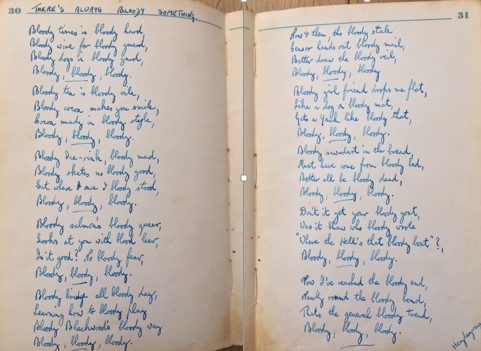 30 THERE'S ALWAYS BLOODY SOMETHING.
Bloody times is bloody hard,
Bloody wire for bloody guard,
Bloody dogs in bloody yard,
Bloody, bloody, bloody.
Bloody tea is bloody vile,
Bloody cocoa makes you smile,
Cocoa made in bloody style,
Bloody, bloody, bloody.
Bloody ice-rink, bloody mud,
Bloody skates no bloody good,
bloody stood,
Bloody, bloody, bloody.
Bloody salmon's bloody queer,
Looks at you with bloody leer,
Is't good? No bloody fear,
Bloody, bloody, bloody.
Bloody bridge all bloody day,
Learning how to bloody play
Bloody Blackwood's bloody way
Bloody, bloody, bloody.
31
Now & then the bloody stale
bloody mail,
Better draw the bloody veil,
Bloody, bloody, bloody
Bloody girl friend drops me flat,
Like a dog a bloody mat,
Gets a yank like bloody that,
Bloody, bloody, bloody.
Bloody sawdust in the bread,
Must have come from bloody bed,
Better all be bloody dead,
Bloody, bloody, bloody.
Don't it get your bloody goat,
Was it them who bloody wrote
"Where the Hell's that bloody boat"?,
Bloody, bloody, bloody.
Now I've reached the bloody end,
Nearly round the bloody bend,
That's the general bloody trend,
Bloody, bloody, bloody.